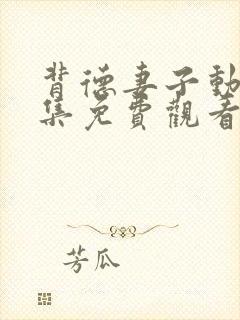 背德妻子動
集免費觀看
芳瓜